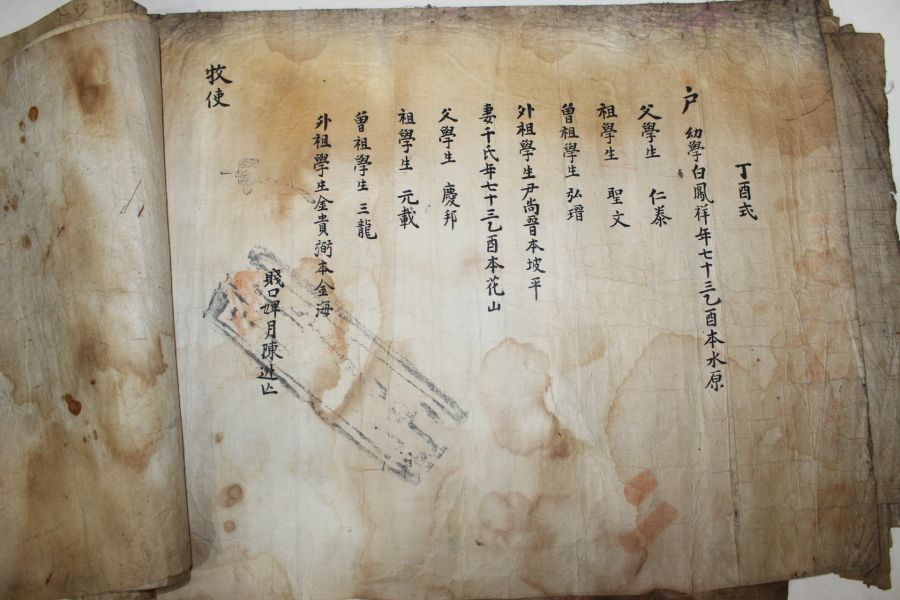 丁酉式
戶 幼學白鳳祥年七十三乙酉本水原
父學生 仁泰
祖學生 聖文
曾祖學生 弘瑨
外祖學生尹尚晉本坡平
妻千氏年七十三乙酉本花山
父學生 慶邦
祖學生 元載
曾祖學生 三龍
外祖學生金貴弼本金海
賤口婢月陳逃亡
牧使